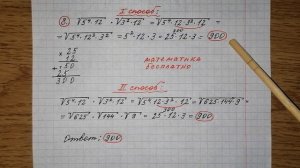 I способ:
8. √5⁴·12 · √3²·12 = √5⁴·12·3²·12 =
= √5⁴·12²·3² = 5²·12·3 = 25·12·3 = 900
300
× 25
12
+ 50
25
300
МАТЕМАТИКА
БЕСПЛАТНО
II способ:
√5⁴·12 · √3²·12 = √5⁴·12·3²·12 = √625·144·9 =
= √625 · √144 · √9 = 25·12·3 = 900
300
Ответ: 900